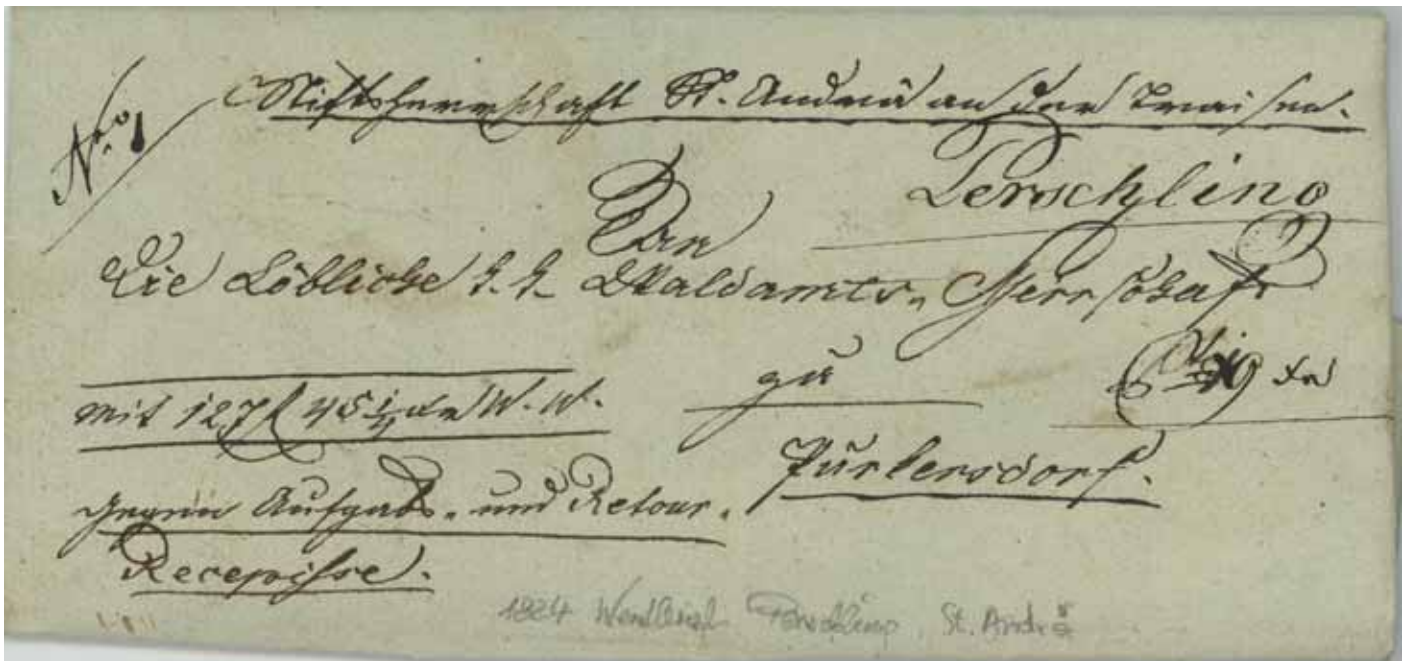 Nro 1
Stiftsherrschaft St. Andrä an der Traisen.
Perschling
An
Die Löbliche k. k. Waldamts-Herrschaft
zu
mit 127 f 45 1/4 xr W. W.
Purkersdorf.
gegen Aufgabs- und Retour-
Recepisse.
1824 Wertbrief Perschling, St. Andrä